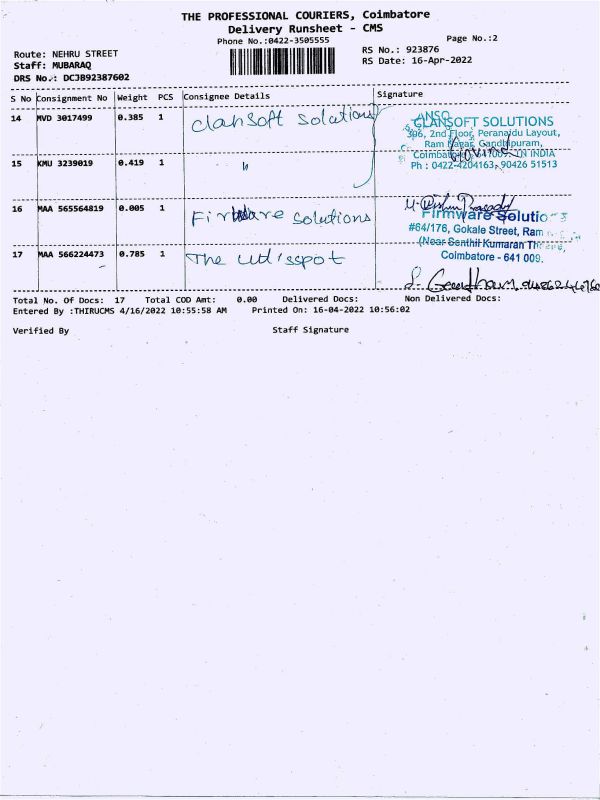 THE PROFESSIONAL COURIERS, Coimbatore
Delivery Runsheet - CMS
Phone No.:0422-3505555
Page No.:2
Route: NEHRU STREET
Staff: MUBARAQ
DRS No.: DCJB92387602
RS No.: 923876
RS Date: 16-Apr-2022
S No Consignment No Weight PCS Consignee Details Signature
14 MVD 3017499 0.385 1 clanSoft solutions
GLANSOFT SOLUTIONS
306, 2nd Floor, Peranaidu Layout,
Ram Nagar, Gandhipuram,
Coimbatore IN INDIA
Ph : 0422-4204163, 90426 51513
15 KMU 3239019 0.419 1 "
16 MAA 565564819 0.005 1 Firmware solutions
Firmware Solutio
#64/176, Gokale Street, Ram
(Near Senthil Kumaran
Coimbatore - 641 009.
17 MAA 566224473 0.785 1 The
Total No. Of Docs: 17 Total COD Amt: 0.00 Delivered Docs: Non Delivered Docs:
Entered By :THIRUCMS 4/16/2022 10:55:58 AM Printed On: 16-04-2022 10:56:02
Verified By Staff Signature